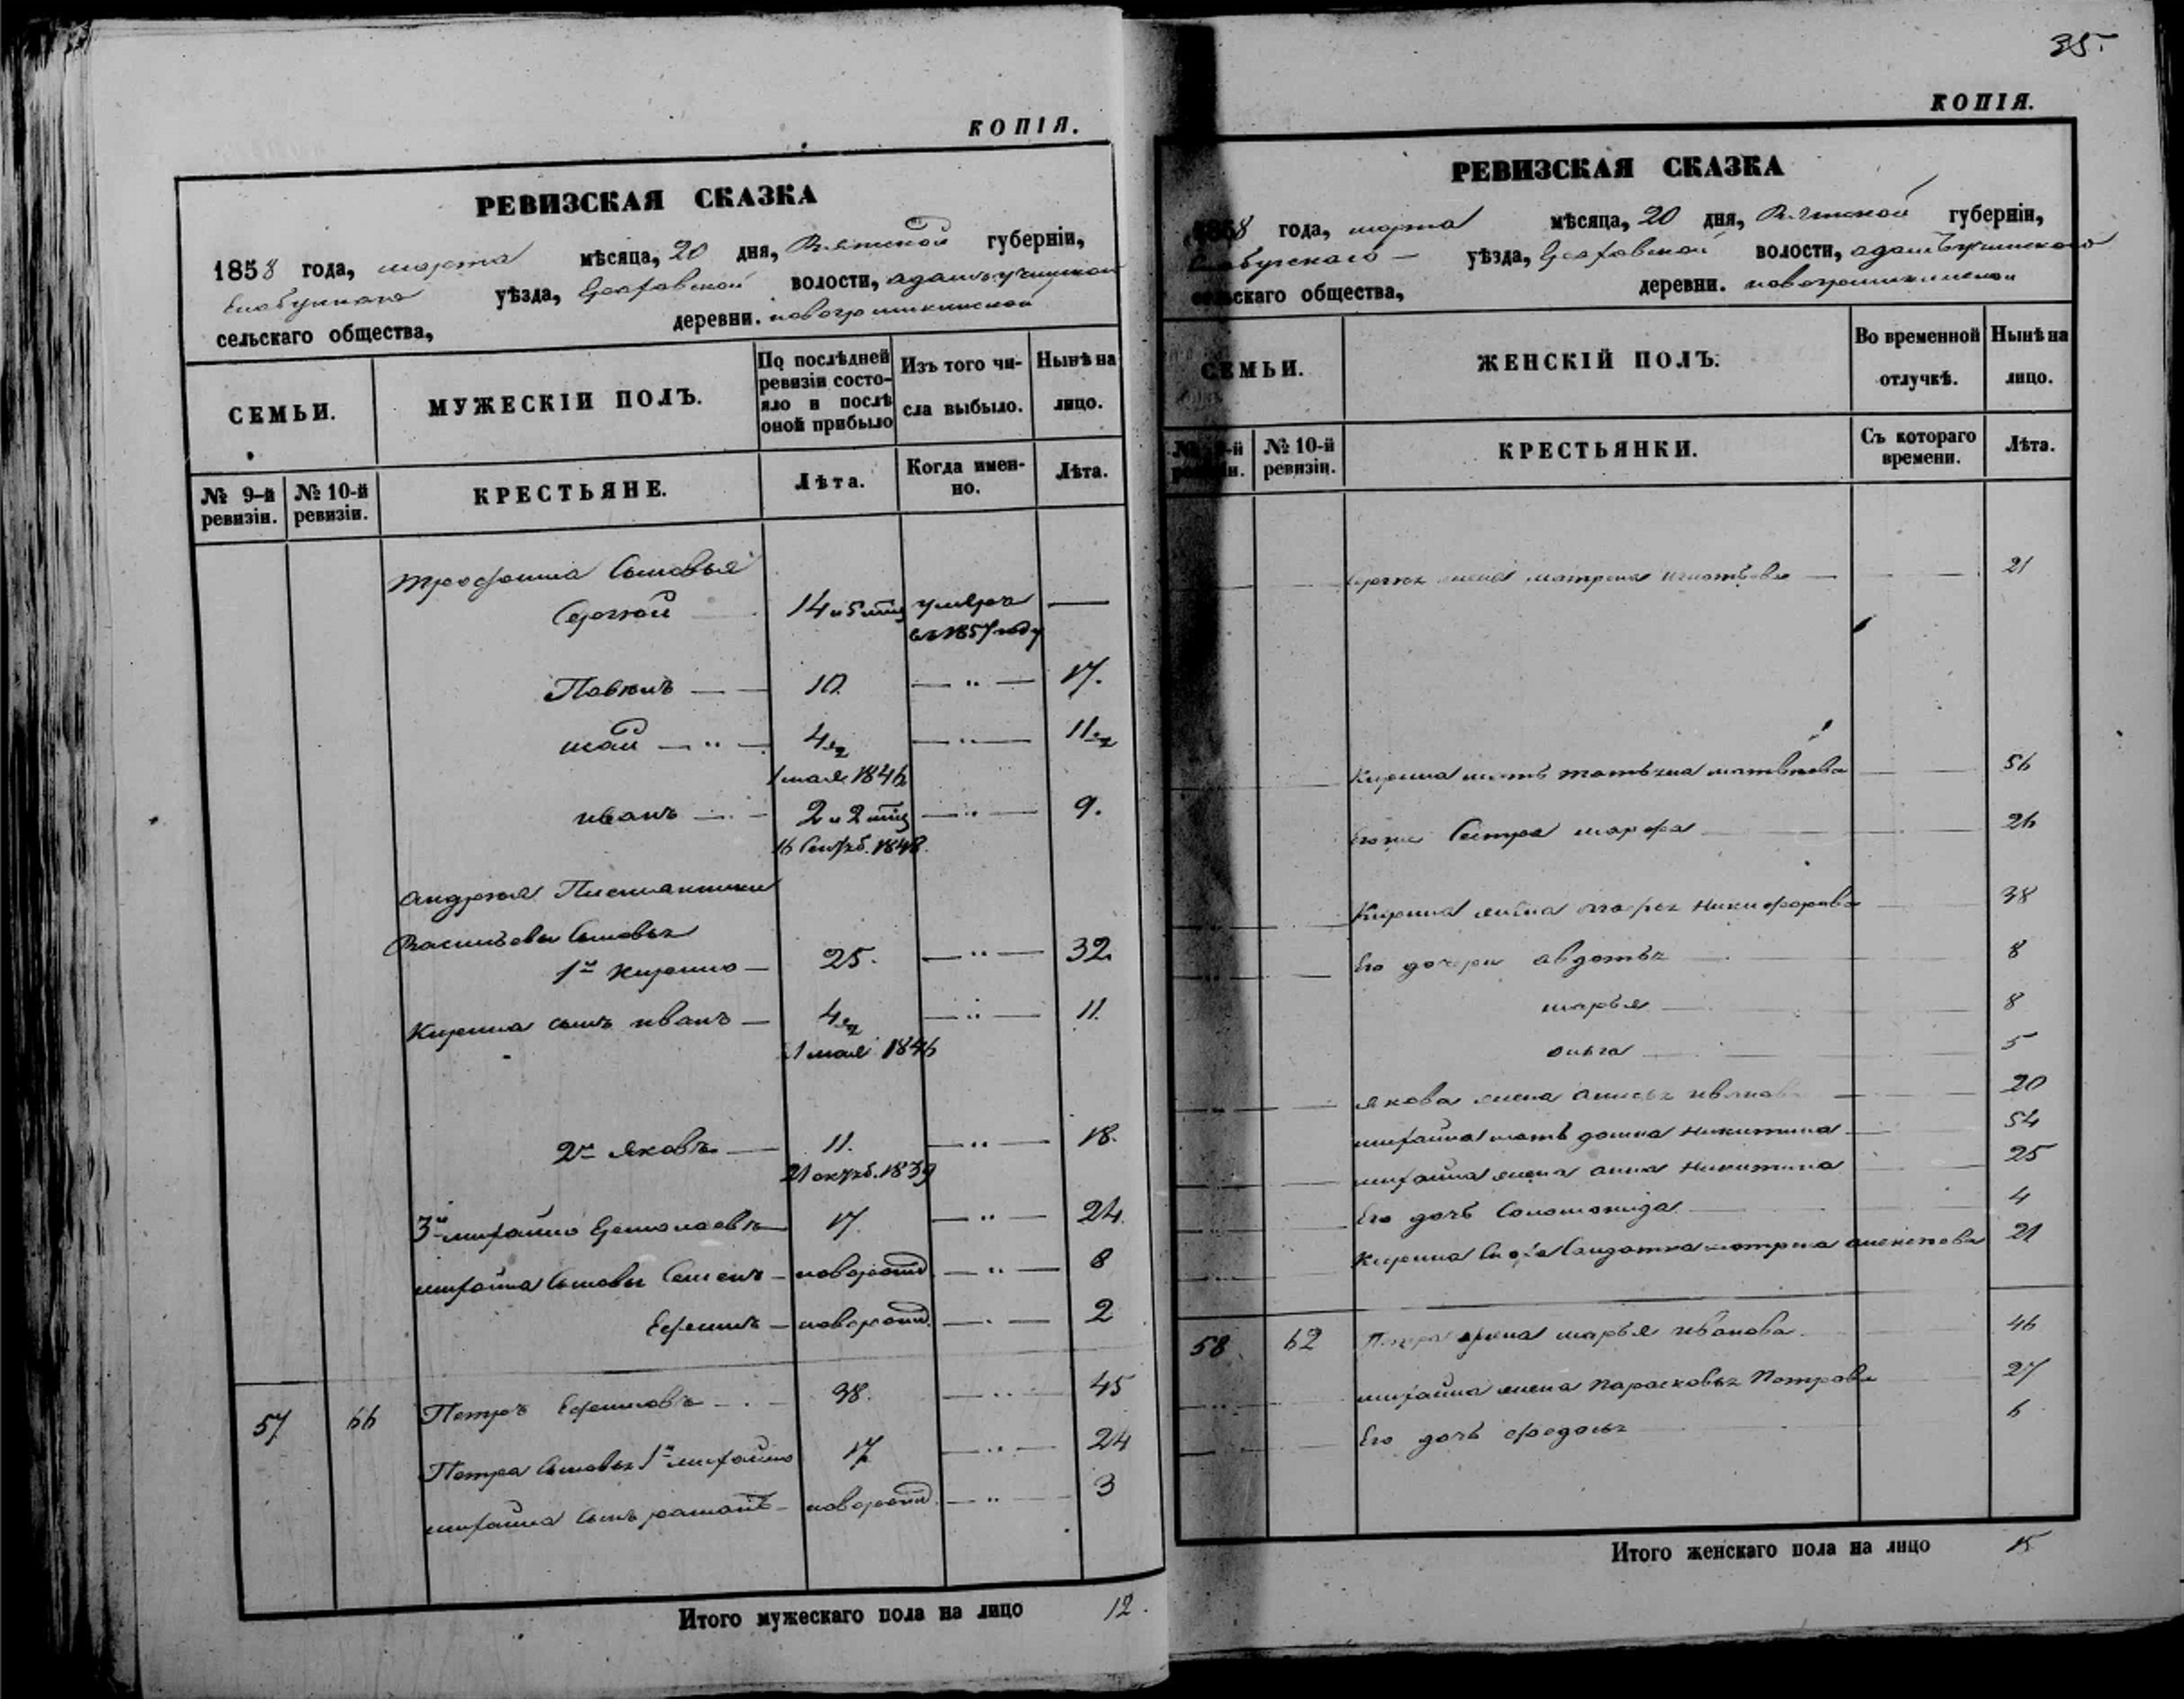 КОПІЯ.
РЕВИЗСКАЯ СКАЗКА
1858 года, марта мѣсяца, 20 дня, Вятской губерніи,
Елабужскаго уѣзда, волости,
сельскаго общества, деревни.
СЕМЬИ.
МУЖЕСКІЙ ПОЛЪ.
По послѣдней ревизіи состо-
яло и послѣ оной прибыло
Изъ того чи-
сла выбыло.
Нынѣ на лицо.
№ 9-й ревизіи.
№ 10-й ревизіи.
КРЕСТЬЯНЕ.
Лѣта.
Когда имен-
но.
Лѣта.
Трофима Сыновья
Сергѣй 14 умеръ —
въ 1857 году
Павелъ — 10. — " — 17.
— " — 4 — " — 11
1 мая 1846
иванъ — 2 — " — 9.
16 1848.
андрея
Васильевы Сыновья
1й Кирило — 25. — " — 32
Кирила сынъ иванъ — 4 — " — 11.
1 мая 1846
2й яковъ — 11. — " — 18.
21 1839
3й михайло — 17. — " — 24.
михайла Сыновья Семенъ — новорожд. — " — 8
Ефимъ — новорожд. — " — 2
57 66 Петръ Ефимовъ — 38. — " — 45
Петра Сыновья 1й михайло 17 — " — 24
михайла Сынъ романъ — новорожд. — " — 3
Итого мужескаго пола на лицо 12.
35.
КОПІЯ.
РЕВИЗСКАЯ СКАЗКА
1858 года, марта мѣсяца, 20 дня, Вятской губерніи,
Елабужскаго — уѣзда, волости,
сельскаго общества, деревни.
СЕМЬИ.
ЖЕНСКІЙ ПОЛЪ.
Во временной
отлучкѣ.
Нынѣ на
лицо.
№ 9-й ревизіи.
№ 10-й ревизіи.
КРЕСТЬЯНКИ.
Съ котораго
времени.
Лѣта.
жена матрена — 21
Кирила мать татьяна матвѣева 56
Его же Сестра марфа 26
Кирила жена Никифорова 38
Его дочери авдотья 8
марья 8
ольга 5
якова жена анисья иванова 20
михайла мать домна Никитина 54
михайла жена анна Никитина 25
Его дочь Соломонида 4
Кирила Солдатка матрена алексѣева 21
58 62 Петра жена марья иванова 46
михайла жена Парасковья Петрова 27
Его дочь федосья 6
Итого женскаго пола на лицо 15